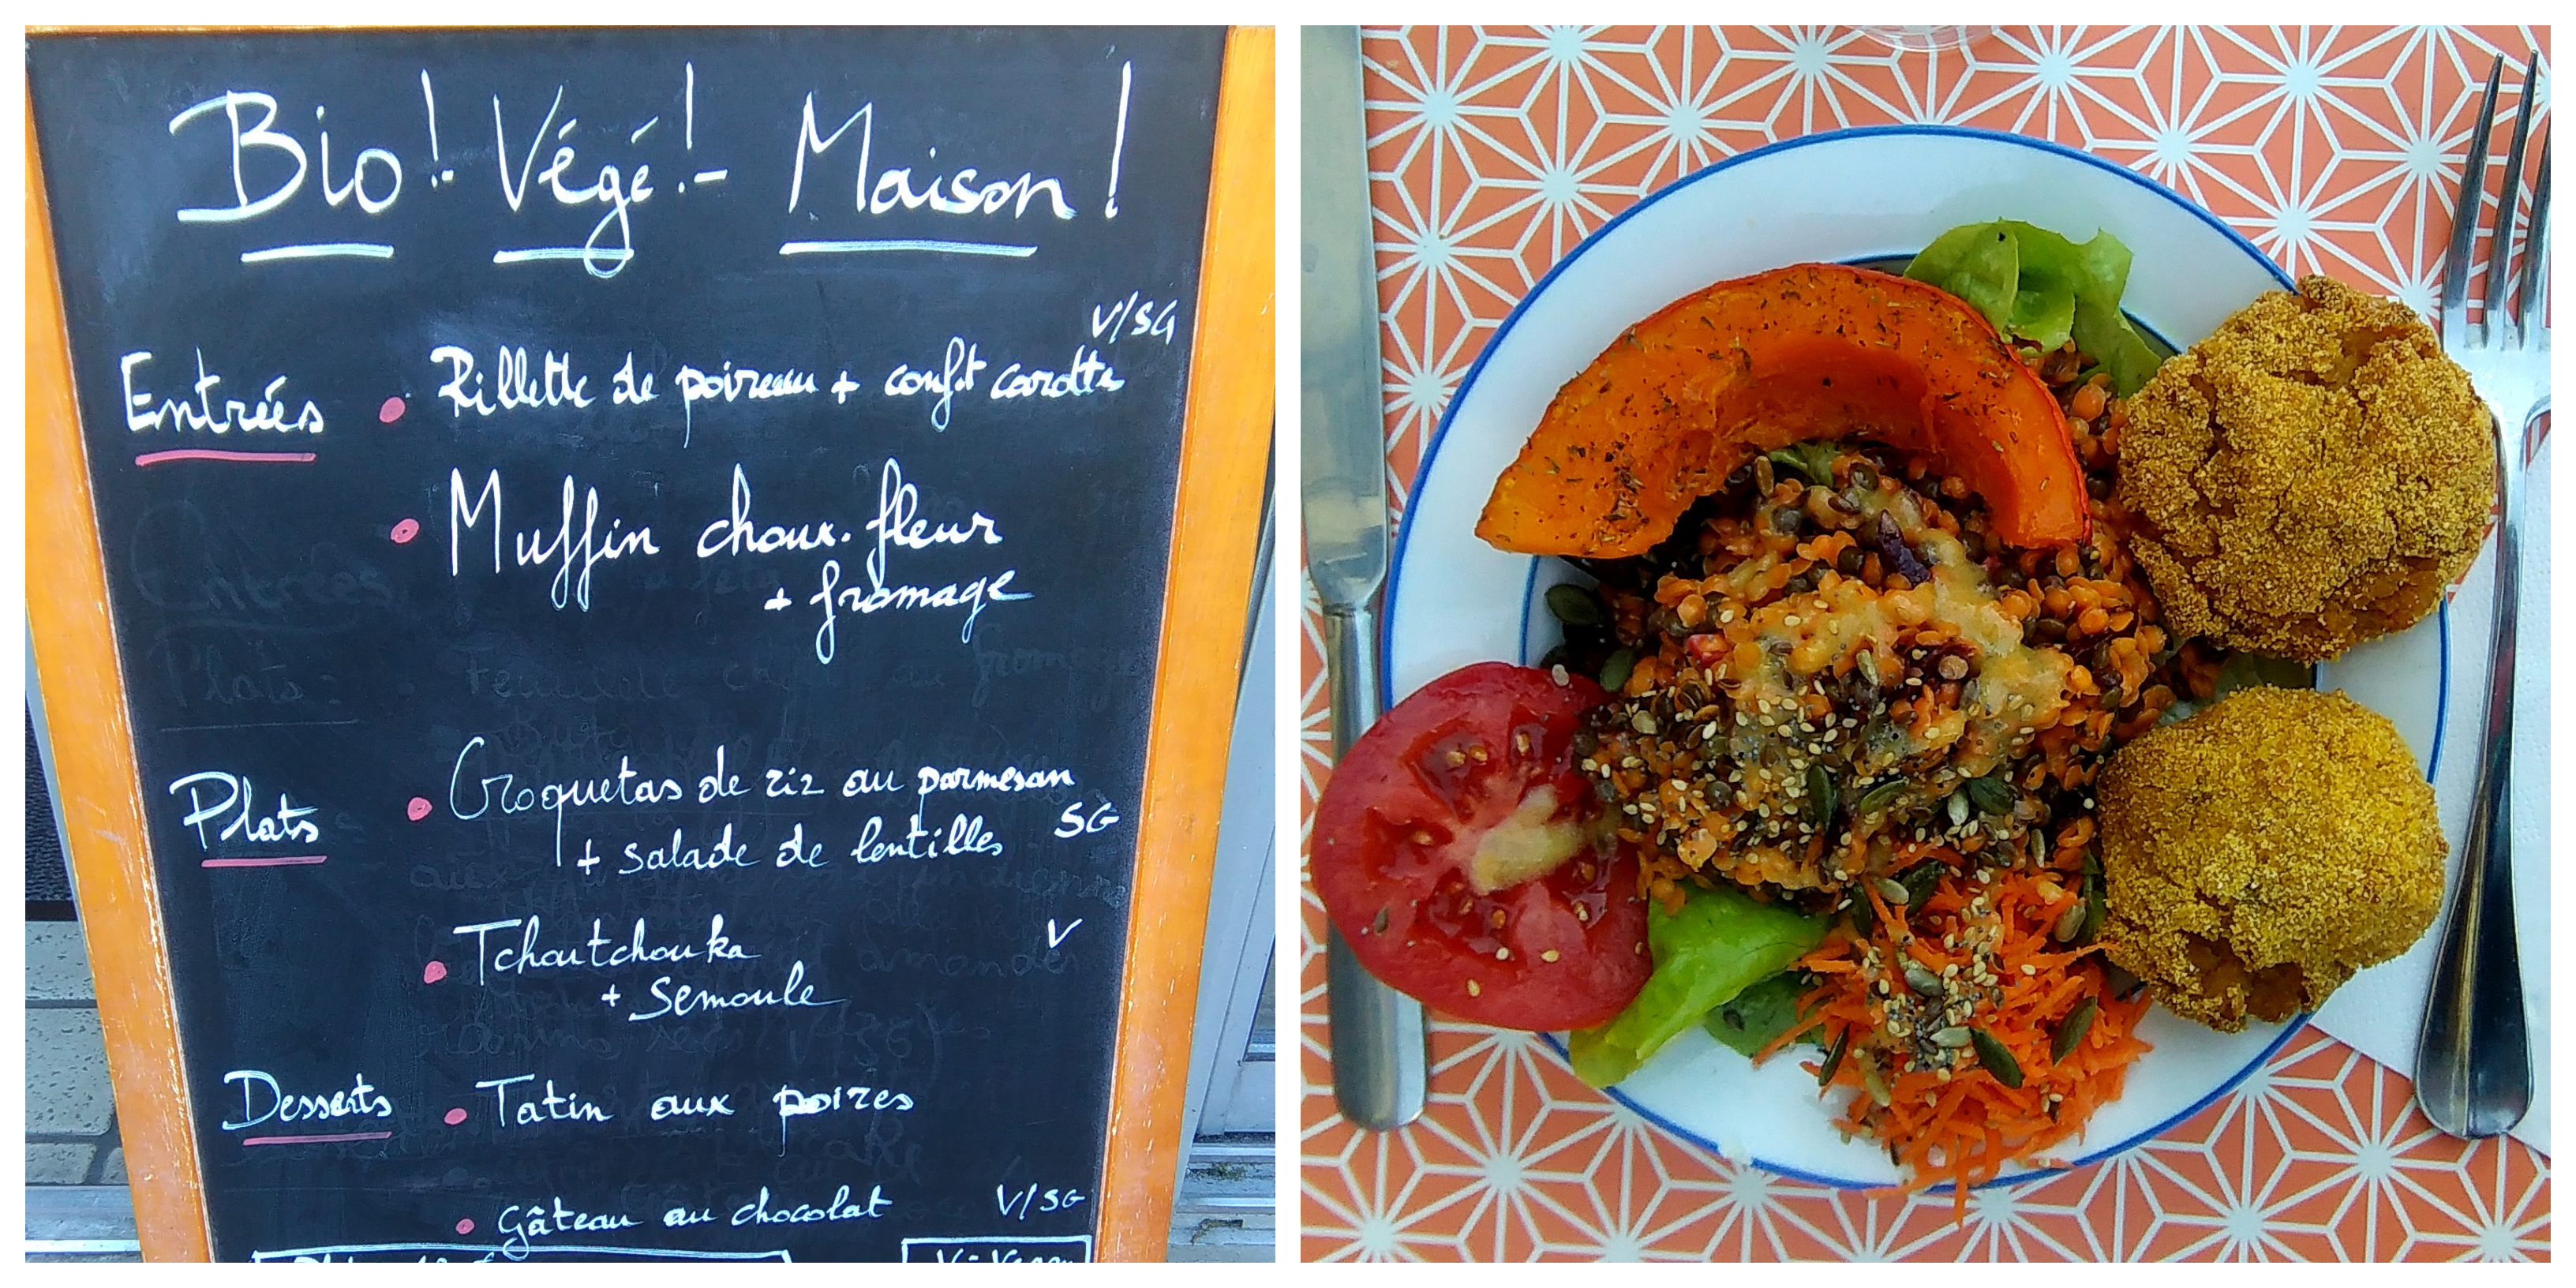 Bio! Végé! - Maison!
V/SG
Entrées • Rillette de poireau + confit carottes
• Muffin choux-fleur
+ fromage
Plats • Croquetas de riz au parmesan
+ salade de lentilles SG
• Tchoutchouka V
+ Semoule
Desserts • Tatin aux poires
• Gâteau au chocolat V/SG
V: Vegan